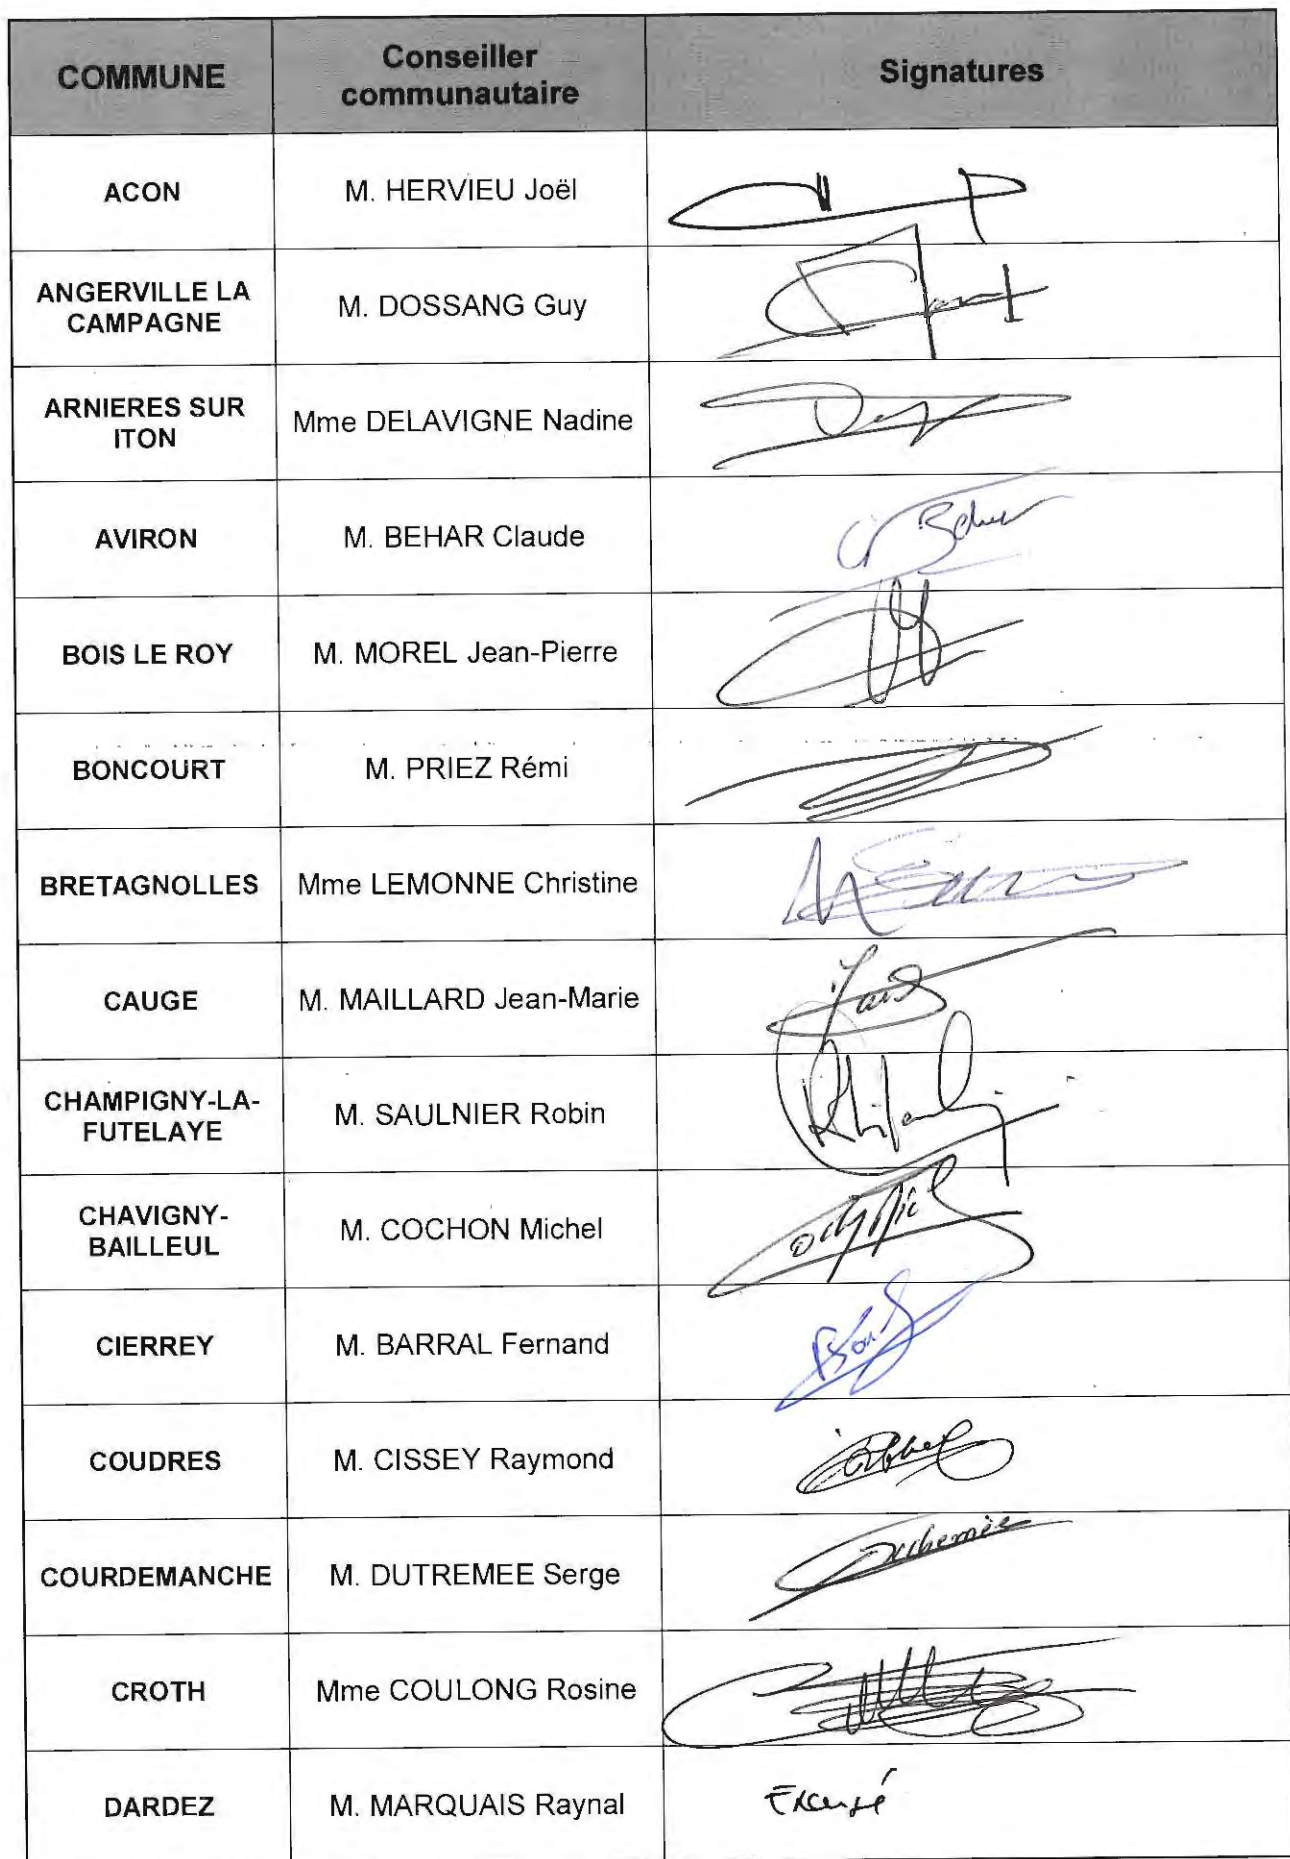 COMMUNE
Conseiller
communautaire
Signatures
ACON
M. HERVIEU Joël
ANGERVILLE LA
CAMPAGNE
M. DOSSANG Guy
ARNIERES SUR
ITON
Mme DELAVIGNE Nadine
AVIRON
M. BEHAR Claude
BOIS LE ROY
M. MOREL Jean-Pierre
BONCOURT
M. PRIEZ Rémi
BRETAGNOLLES
Mme LEMONNE Christine
CAUGE
M. MAILLARD Jean-Marie
CHAMPIGNY-LA-
FUTELAYE
M. SAULNIER Robin
CHAVIGNY-
BAILLEUL
M. COCHON Michel
CIERREY
M. BARRAL Fernand
COUDRES
M. CISSEY Raymond
COURDEMANCHE
M. DUTREMEE Serge
CROTH
Mme COULONG Rosine
DARDEZ
M. MARQUAIS Raynal
Excusé